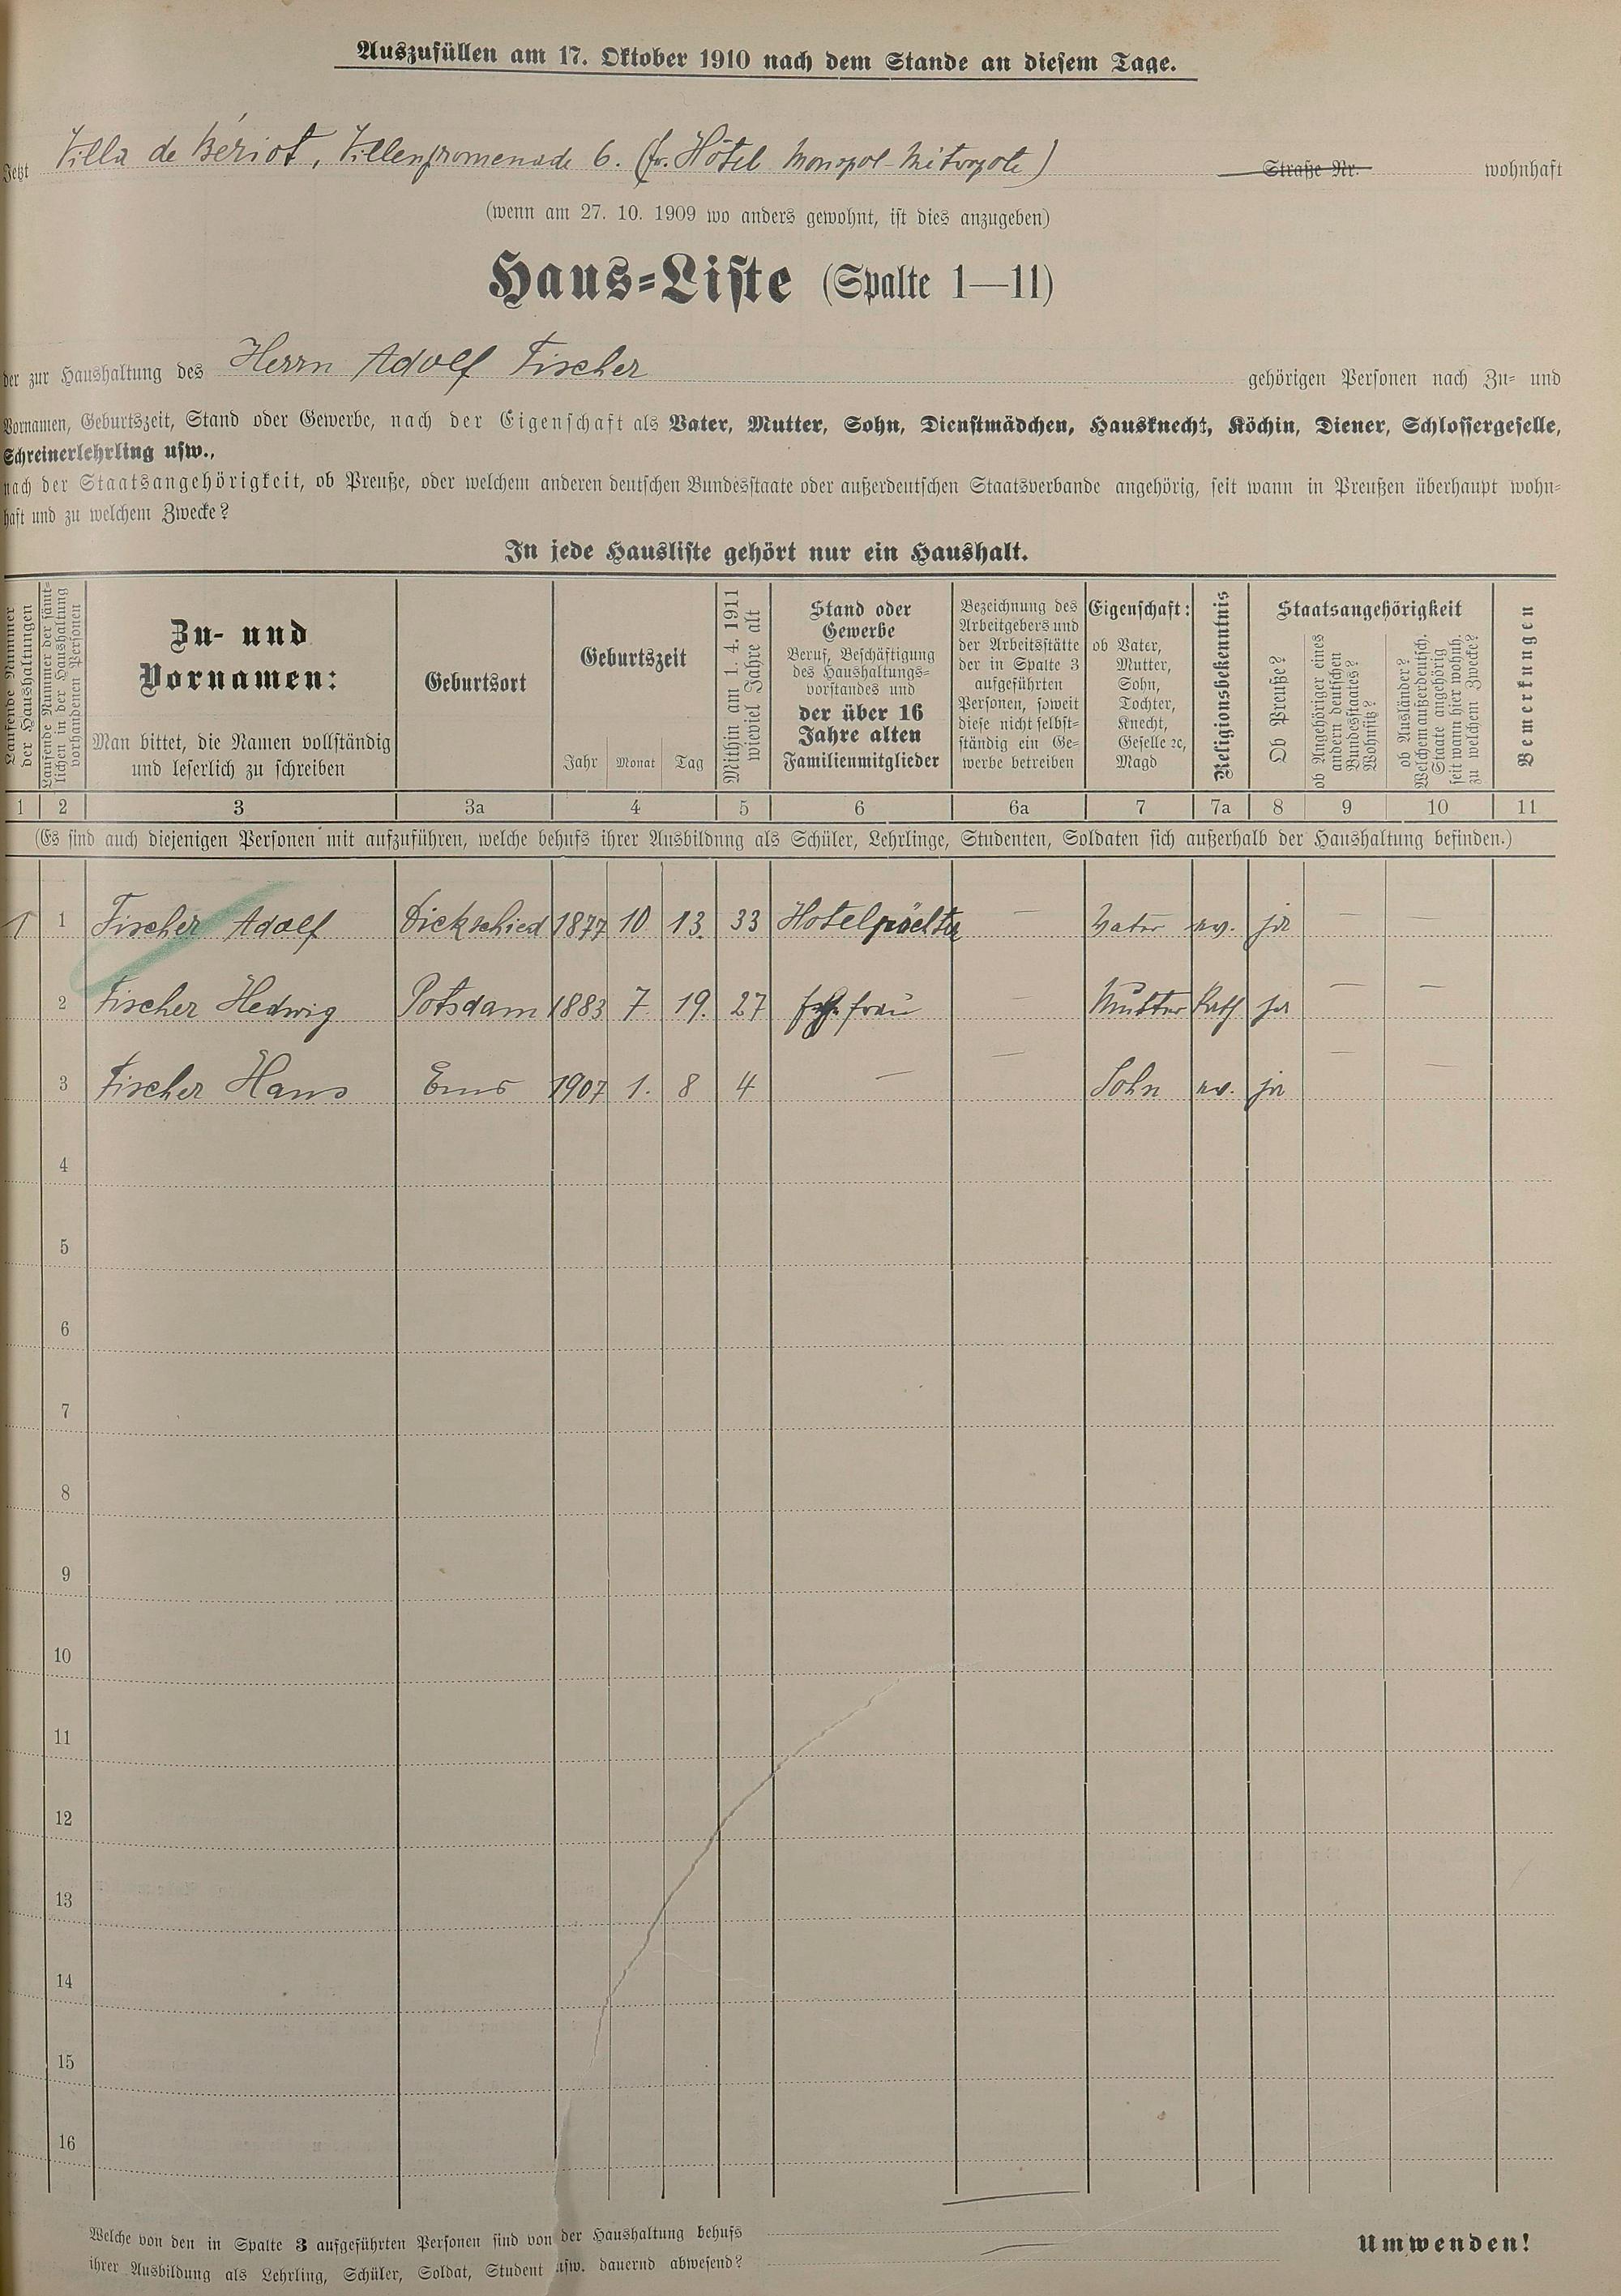 Auszufüllen am 17. Oktober 1910 nach dem Stande an diesem Tage.
Jetzt Villa de Bériot, Villenpromenade 6. (fr. Hôtel Monopol-Metropole) Straße Nr. wohnhaft
(wenn am 27. 10. 1909 wo anders gewohnt, ist dies anzugeben)
Haus-Liste (Spalte 1—11)
der zur Haushaltung des Herrn Adolf Fischer gehörigen Personen nach Zu- und
Vornamen, Geburtszeit, Stand oder Gewerbe, nach der Eigenschaft als Vater, Mutter, Sohn, Dienstmädchen, Hausknecht, Köchin, Diener, Schlossergeselle,
Schreinerlehrling usw.,
nach der Staatsangehörigkeit, ob Preuße, oder welchem anderen deutschen Bundesstaate oder außerdeutschen Staatsverbande angehörig, seit wann in Preußen überhaupt wohn-
haft und zu welchem Zwecke?
In jede Hausliste gehört nur ein Haushalt.
Laufende Nummer
der Haushaltungen
Laufende Nummer der sämt-
lichen in der Haushaltung
vorhandenen Personen
Zu- und
Vornamen:
Man bittet, die Namen vollständig
und leserlich zu schreiben
Geburtsort
Geburtszeit
Jahr Monat Tag
Mithin am 1. 4. 1911
wieviel Jahre alt
Stand oder
Gewerbe
Beruf, Beschäftigung
des Haushaltungs-
vorstandes und
der über 16
Jahre alten
Familienmitglieder
Bezeichnung des
Arbeitgebers und
der Arbeitsstätte
der in Spalte 3
aufgeführten
Personen, soweit
diese nicht selbst-
ständig ein Ge-
werbe betreiben
Eigenschaft:
ob Vater,
Mutter,
Sohn,
Tochter,
Knecht,
Geselle ꝛc,
Magd
Religionsbekenntnis
Staatsangehörigkeit
Ob Preuße?
ob Angehöriger eines
andern deutschen
Bundesstaates?
Wohnsitz?
ob Ausländer?
Welchem außerdeutsch.
Staate angehörig
seit wann hier wohnh.
zu welchem Zwecke?
Bemerkungen
1 2 3 3a 4 5 6 6a 7 7a 8 9 10 11
(Es sind auch diejenigen Personen mit aufzuführen, welche behufs ihrer Ausbildung als Schüler, Lehrlinge, Studenten, Soldaten sich außerhalb der Haushaltung befinden.)
1 1 Fischer Adolf Dickschied 1877 10. 13. 33 Hotelpächter — Vater ev. ja — —
2 Fischer Hedwig Potsdam 1883 7. 19. 27 frau — Mutter Kath ja — —
3 Fischer Hans Ems 1907 1. 8 4 — — Sohn ev. ja — —
4
5
6
7
8
9
10
11
12
13
14
15
16
Welche von den in Spalte 3 aufgeführten Personen sind von der Haushaltung behufs
ihrer Ausbildung als Lehrling, Schüler, Soldat, Student usw. dauernd abwesend? —
Umwenden!